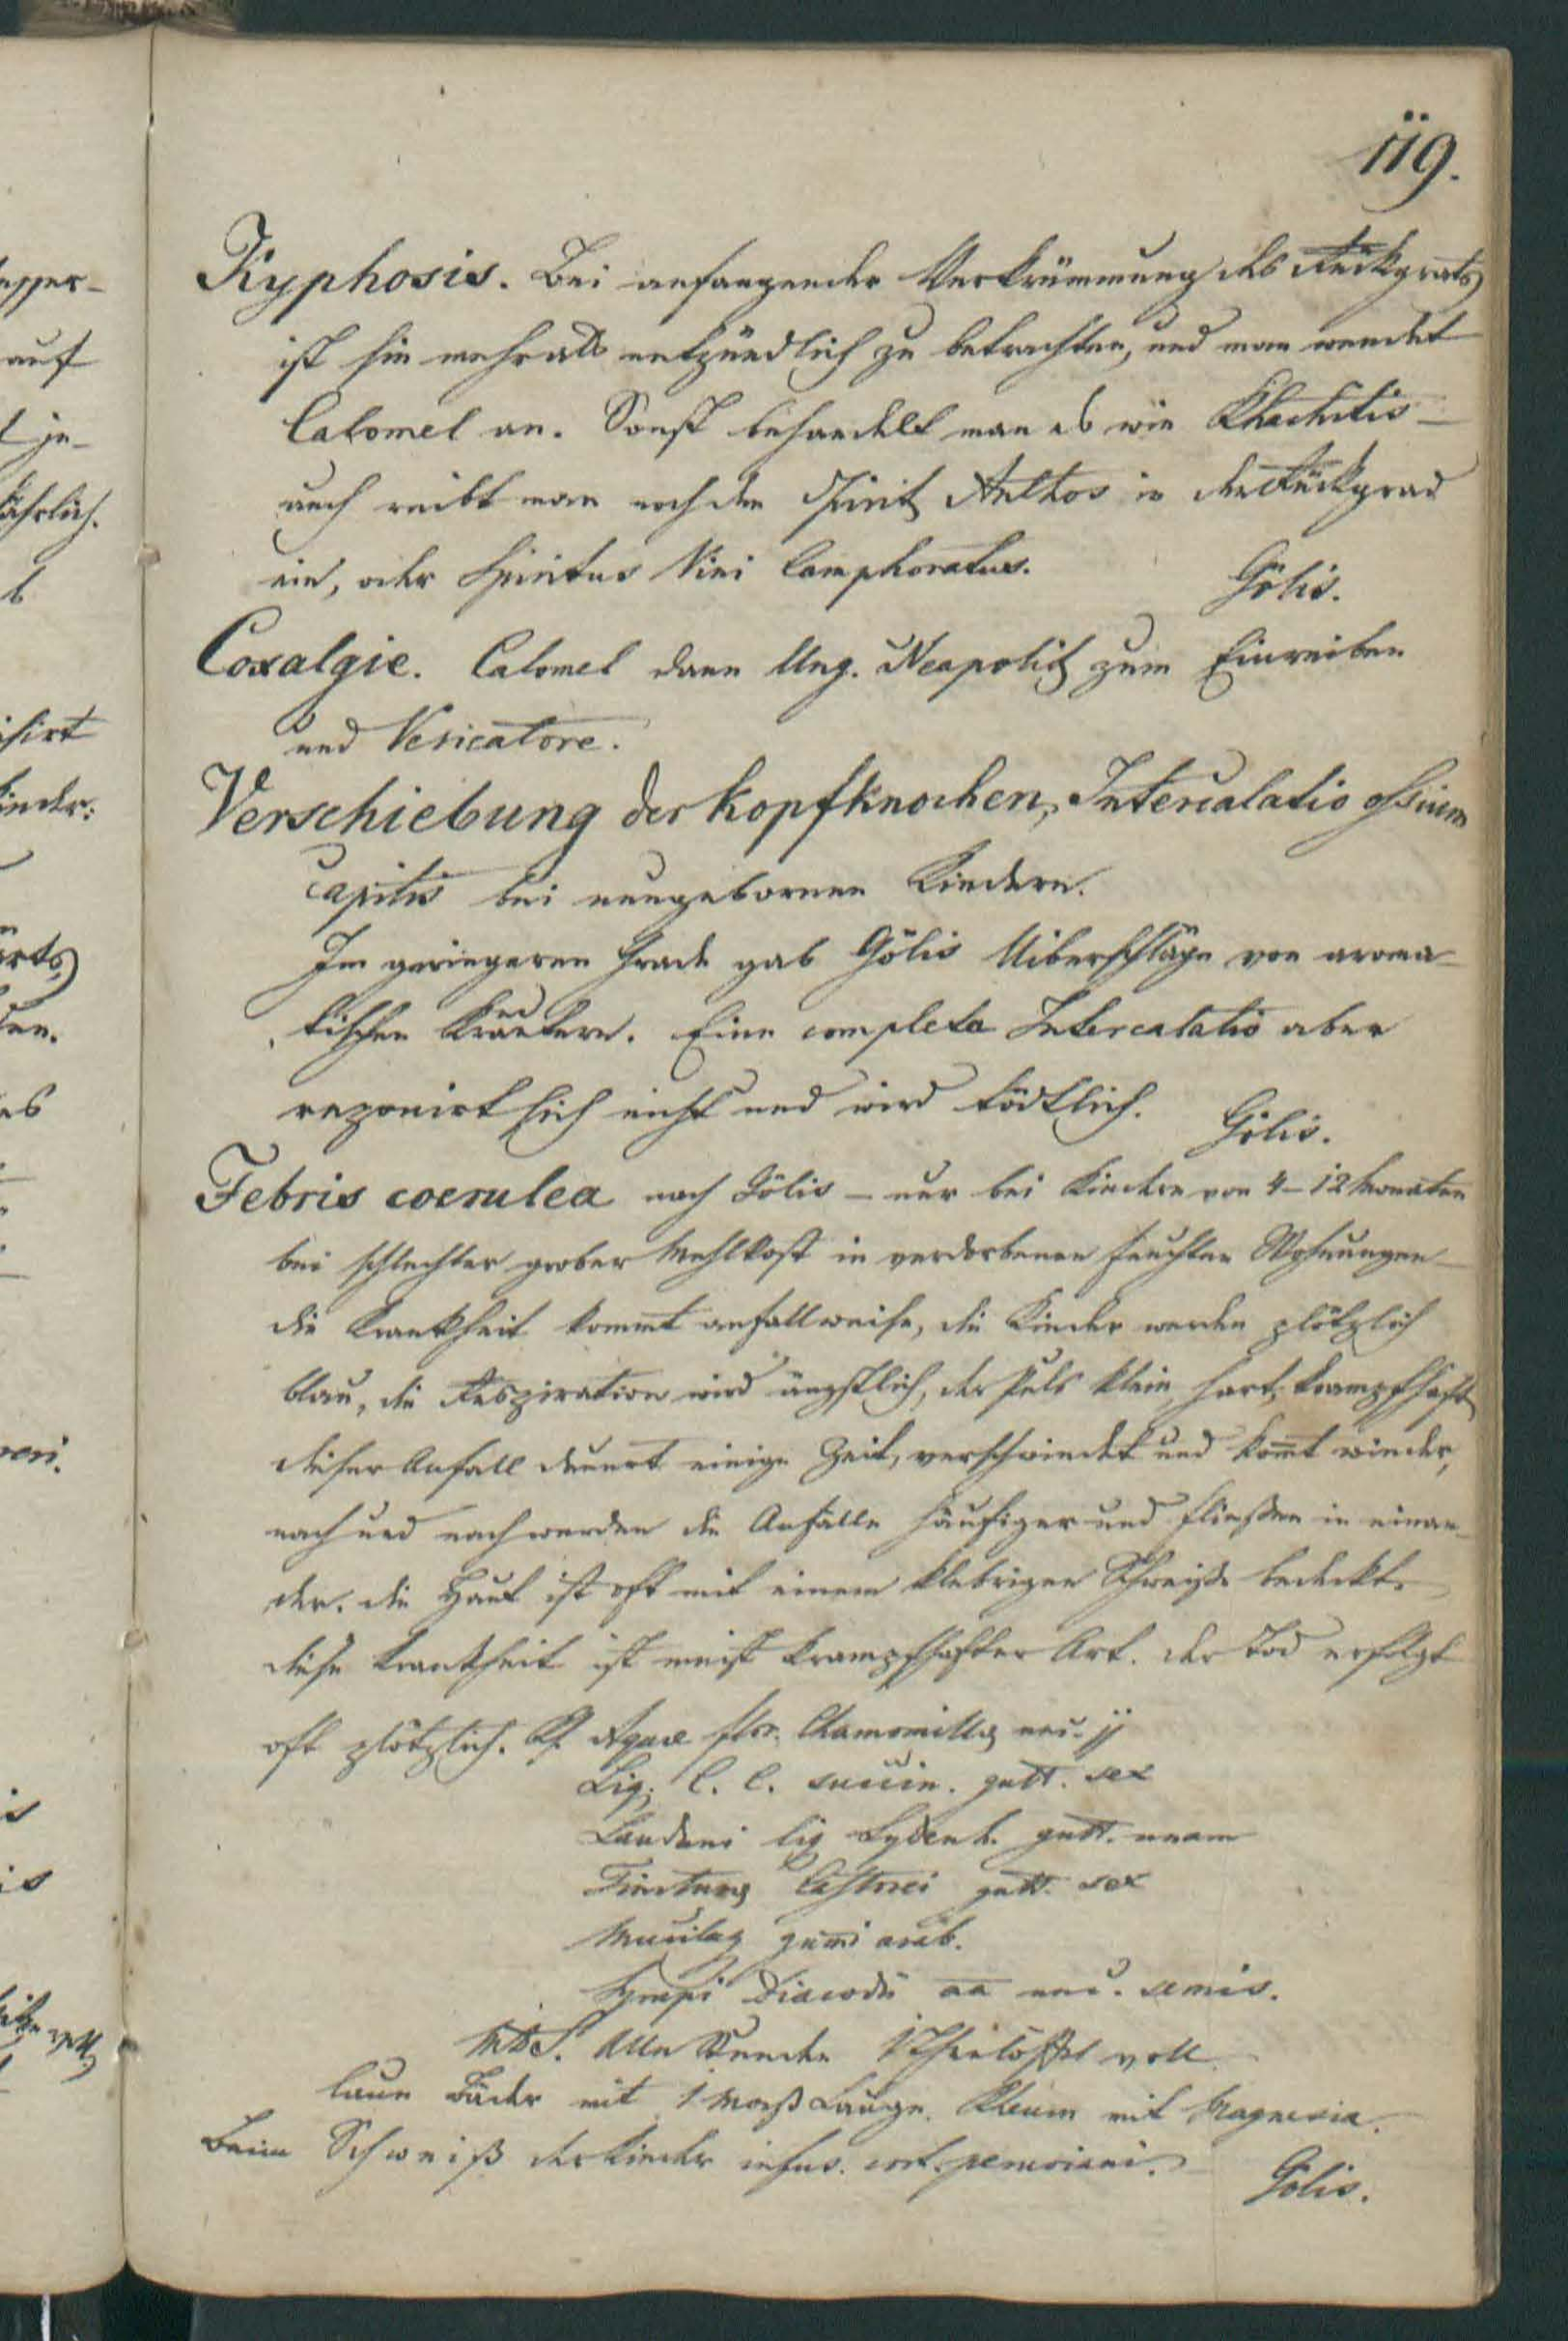 119.
Kyphosis. Bei anfangender Verkrümmung des Rückgrats
ist sie mehr als entzündlich zu betrachten, und man wendet
Calomel an. Sonst behandelt man es wie Rhachitis –
auch reibt man noch den Spirit Anthos in den Rückgrad
ein, oder Spiritus Vini Camphoratus.
Gölis.
Coxalgie. Calomel dann Ung. Neapolit zum Einreiben
und Vesicatore.
Verschiebung der Kopfknochen, Intercalatio ossium
capitis bei neugebornen Kindern.
Im geringeren Grade gab Gölis Uiberschläge von aroma-
tischen Kräutern. Eine completa Intercalatio aber
reponirt sich nicht und wird tödtlich.
Gölis.
Febris coerulea nach Gölis – nur bei Kindern von 4–12 Monaten
bei schlechter grober Mehlkost in verdorbenen feuchten Wohnungen –
die Krankheit kommt anfallweise, die Kinder werden plötzlich
blau, die Respiration wird ängstlich, der Puls klein, hart, krampfhaft
dieser Anfall dauert einige Zeit, verschwindet und kom̄t wieder,
nach und nach werden die Anfälle häufiger und fließen in einan-
der. die Haut ist oft mit einem klebrigen Schweiße bedeckt.
diese Krankheit ist meist krampfhafter Art. der Tod erfolgt
oft plötzlich. Rp. Aquae flor. Chamomillae unc. jj
Liq. C. C. succin. gutt. sex
Laudani liq Sydenh. gutt. unam
Tincturae Castorei gutt. sex
Mucilag gum̄i arab.
Syrupi Diacodii aa unc. semis.
MDS. Alle Stunden 1 Theelöffel voll
laue Bäder mit 1 Maß Lauge. Rheum mit Magnesia.
Beim Schweiß der Kinder infus. cort. peruviani.
Gölis.